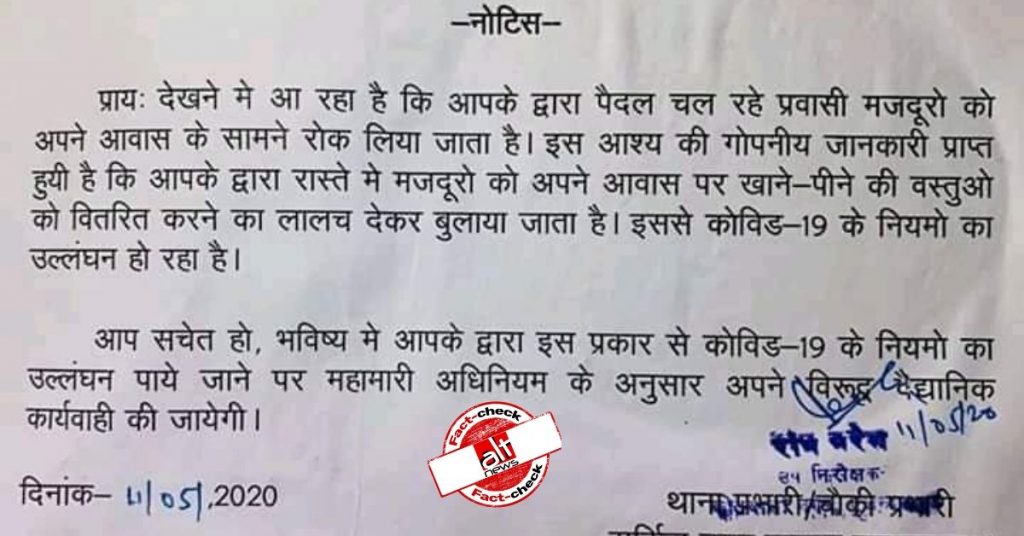 –नोटिस–
प्रायः देखने मे आ रहा है कि आपके द्वारा पैदल चल रहे प्रवासी मजदूरो को
अपने आवास के सामने रोक लिया जाता है। इस आश्य की गोपनीय जानकारी प्राप्त
हुयी है कि आपके द्वारा रास्ते मे मजदूरो को अपने आवास पर खाने–पीने की वस्तुओ
को वितरित करने का लालच देकर बुलाया जाता है। इससे कोविड–19 के नियमो का
उल्लंघन हो रहा है।
आप सचेत हो, भविष्य मे आपके द्वारा इस प्रकार से कोविड–19 के नियमो का
उल्लंघन पाये जाने पर महामारी अधिनियम के अनुसार अपने विरूद्ध वैद्यानिक
कार्यवाही की जायेगी।
11/05/20
Fact-check
alt
news
Fact-check
राम नरेश
उप निरीक्षक
दिनांक– 11/05/,2020
थाना प्रभारी/चौकी प्रभारी